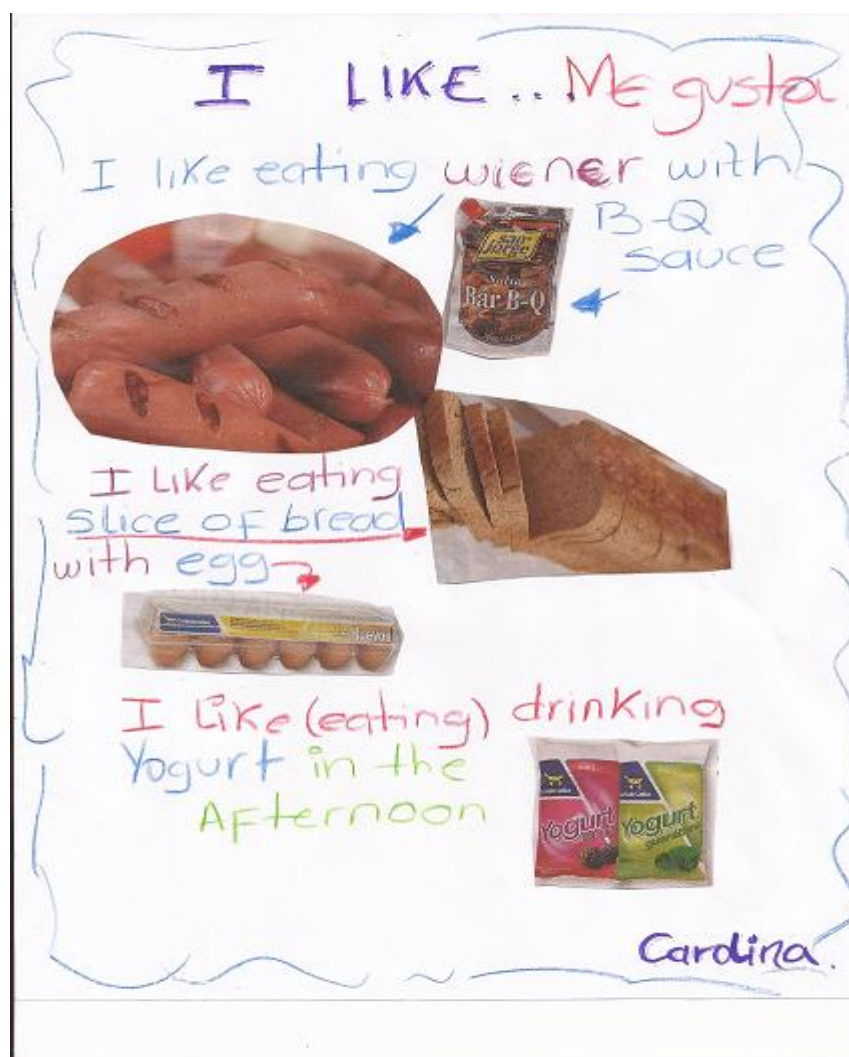 I LIKE... Me gusta
I like eating wiener with
B-Q
sauce
San Jorge
Salsa
Bar B-Q
I Like eating
slice of bread
with egg
I Like (eating) drinking
Yogurt in the
Afternoon
Yogurt
Yogurt
Carolina.